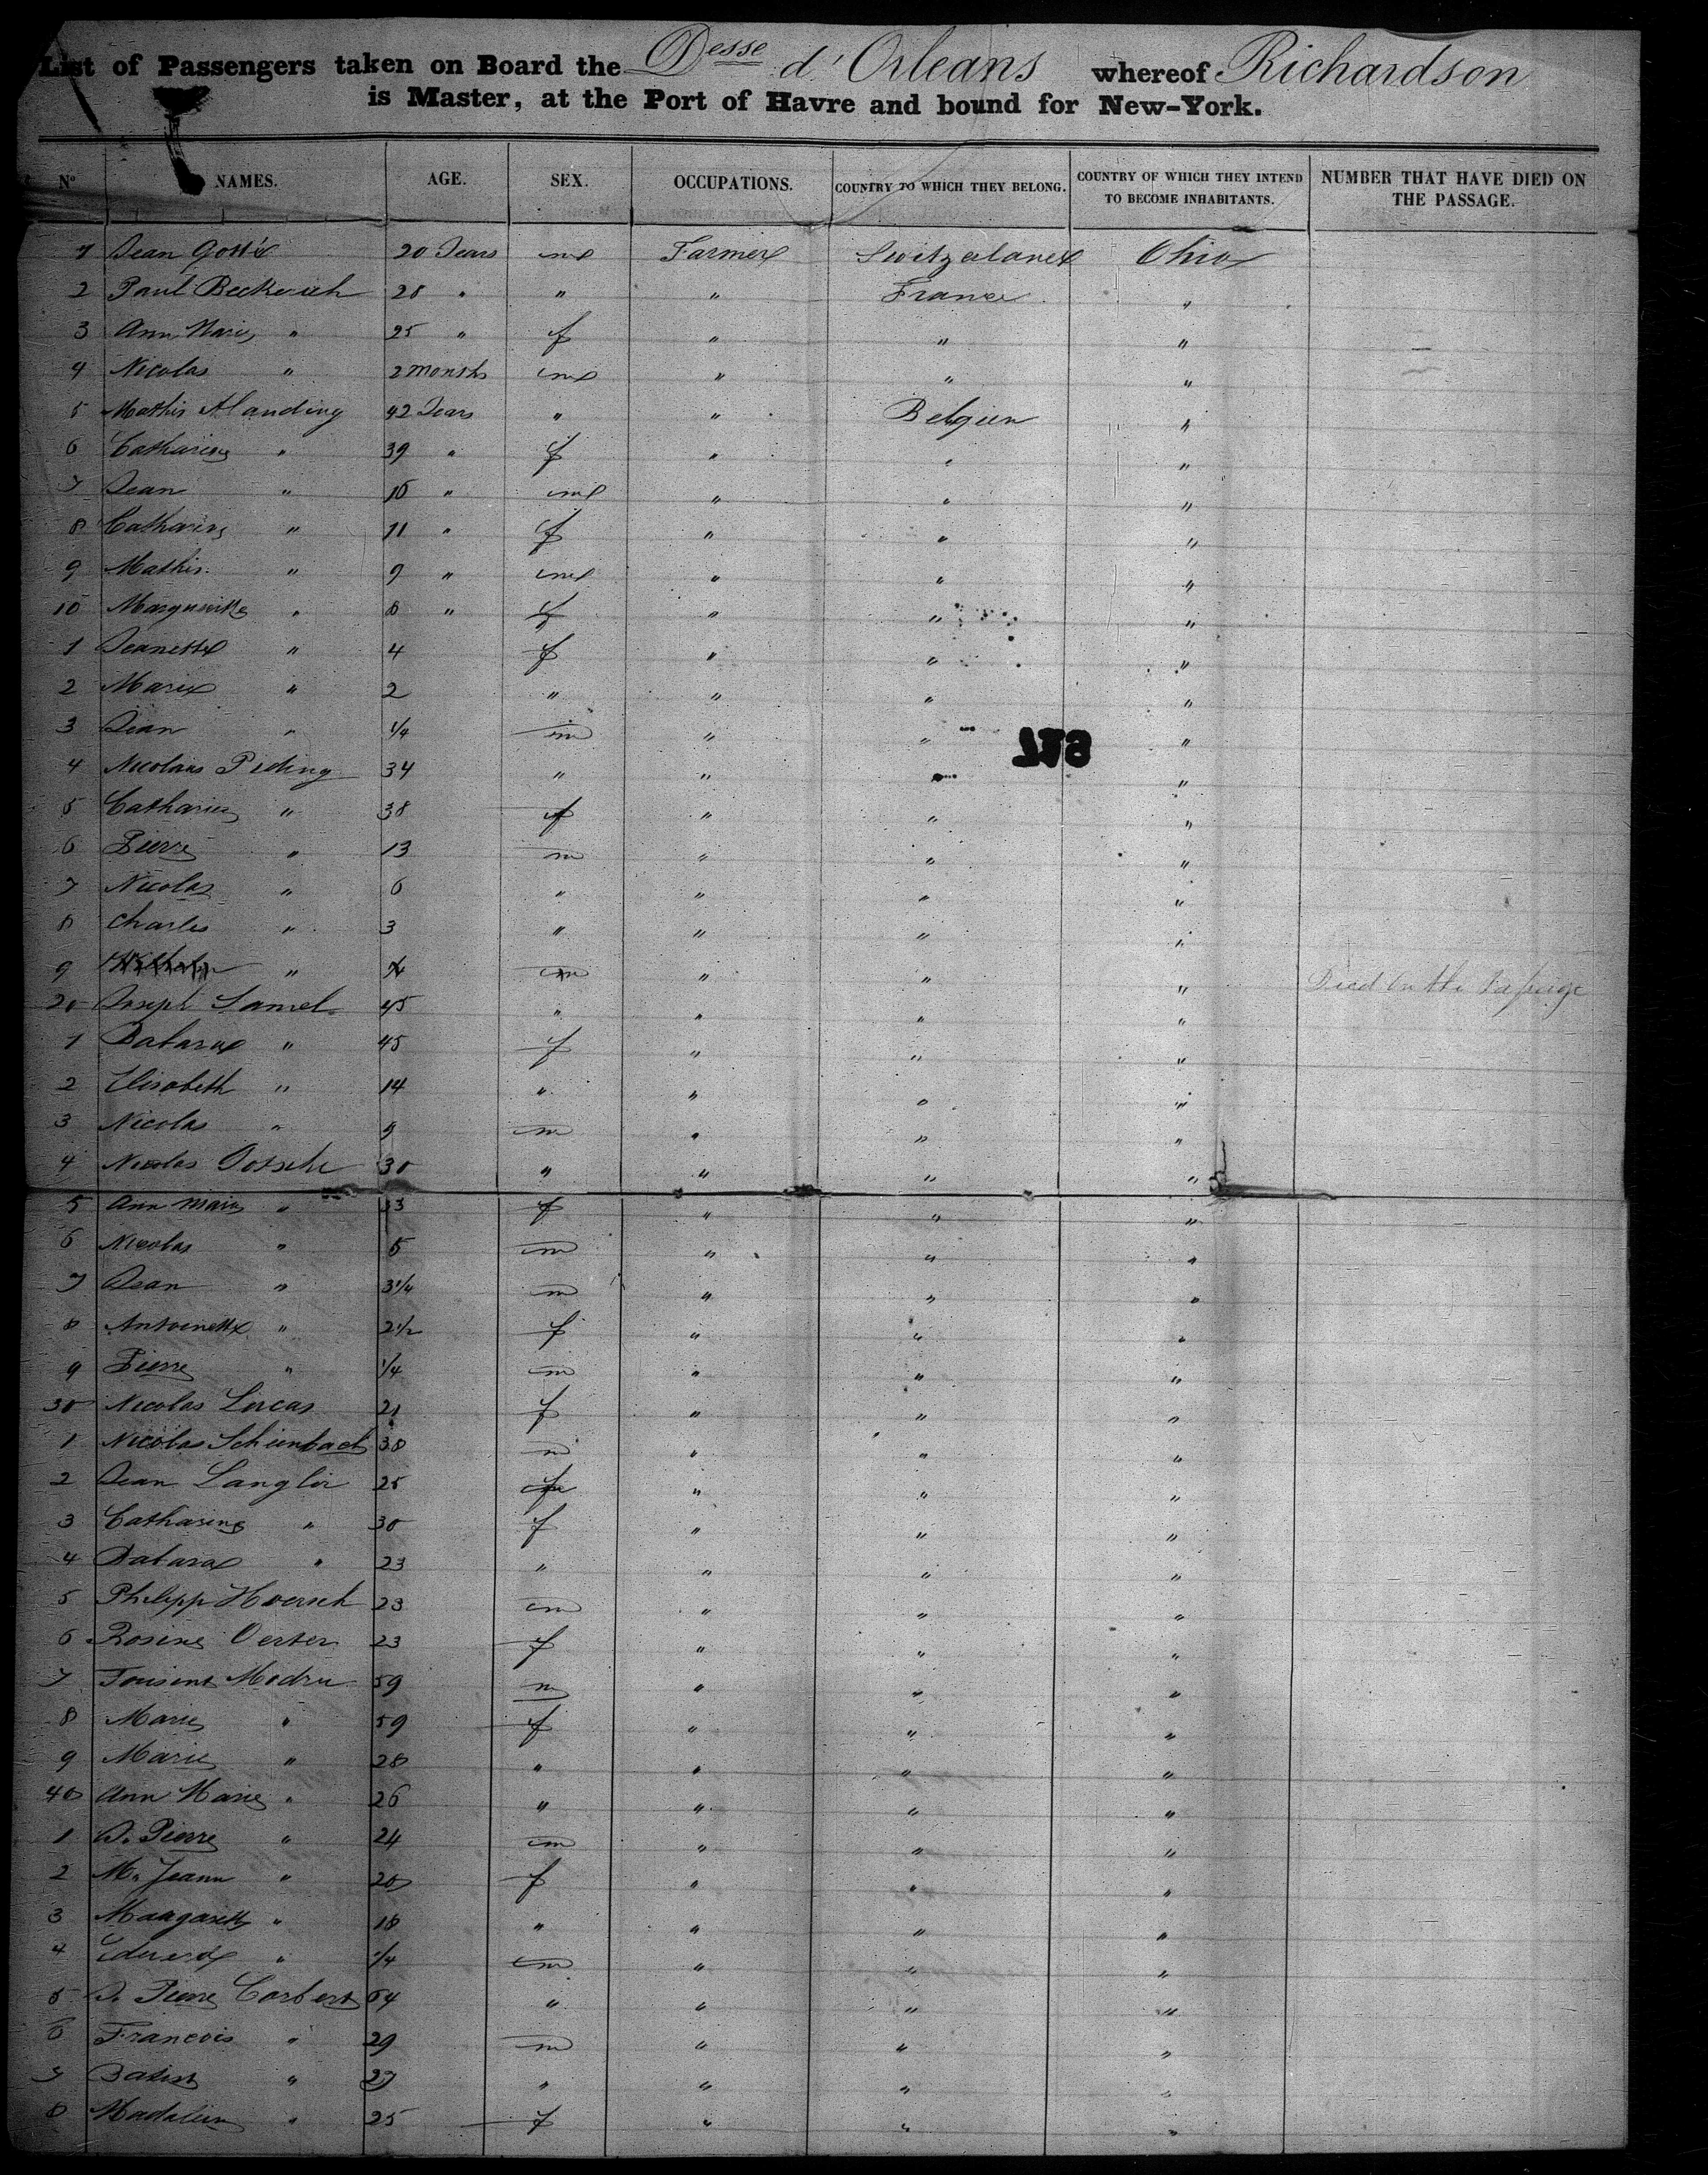 List of Passengers taken on Board the Desse d'Orleans whereof Richardson
is Master, at the Port of Havre and bound for New-York.
No NAMES. AGE. SEX. OCCUPATIONS. COUNTRY TO WHICH THEY BELONG. COUNTRY OF WHICH THEY INTEND TO BECOME INHABITANTS. NUMBER THAT HAVE DIED ON THE PASSAGE.
1 Jean 20 Years m Farmer Switzerland Ohio
2 Paul 28 " " " France "
3 Ann Marie " 25 " f " " "
4 Nicolas " 2 months m " " "
5 Mathis 42 Years " " Belgien "
6 Catharine " 39 " f " " "
7 Jean " 16 " m " " "
8 Catharine " 11 " f " " "
9 Mathis " 9 " m " " "
10 Marguerite " 8 " f " " "
1 Jeanette " 4 f " " "
2 Marie " 2 " " " "
3 Jean " 1/4 m " " "
4 Nicolaus Peding 34 " " " "
5 Catharine " 38 f " " "
6 Pierre " 13 m " " "
7 Nicolas " 6 " " " "
8 Charles " 3 " " " "
9 " m " " " Died on the Passage
20 Joseph Lamel 45 " " " "
1 Babara " 45 f " " "
2 Elisabeth " 14 " " " "
3 Nicolas " 9 m " " "
4 Nicolas 30 " " " "
5 Ann Marie " 33 f " " "
6 Nicolas " 5 m " " "
7 Jean " 3 1/4 m " " "
8 Antoinette " 2 1/2 f " " "
9 Pierre " 1/4 m " " "
30 Nicolas Lucas 21 f " " "
1 Nicolas Scheinbach 38 m " " "
2 Jean Langlir 25 " " "
3 Catharine " 30 f " " "
4 Babara " 23 " " " "
5 Philipp Hoersch 23 m " " "
6 Rosine Oerter 23 f " " "
7 Tousint Modru 59 m " " "
8 Marie " 59 f " " "
9 Marie " 28 " " " "
40 Ann Marie " 26 " " " "
1 J. Pierre " 24 m " " "
2 M. Jeann " 20 f " " "
3 Maagarette " 18 " " " "
4 Eduard " 1/4 m " " "
5 J. Pierre Corbert 64 " " " "
6 Francois " 29 m " " "
7 Batist " 27 " " " "
8 Madalein " 25 f " " "